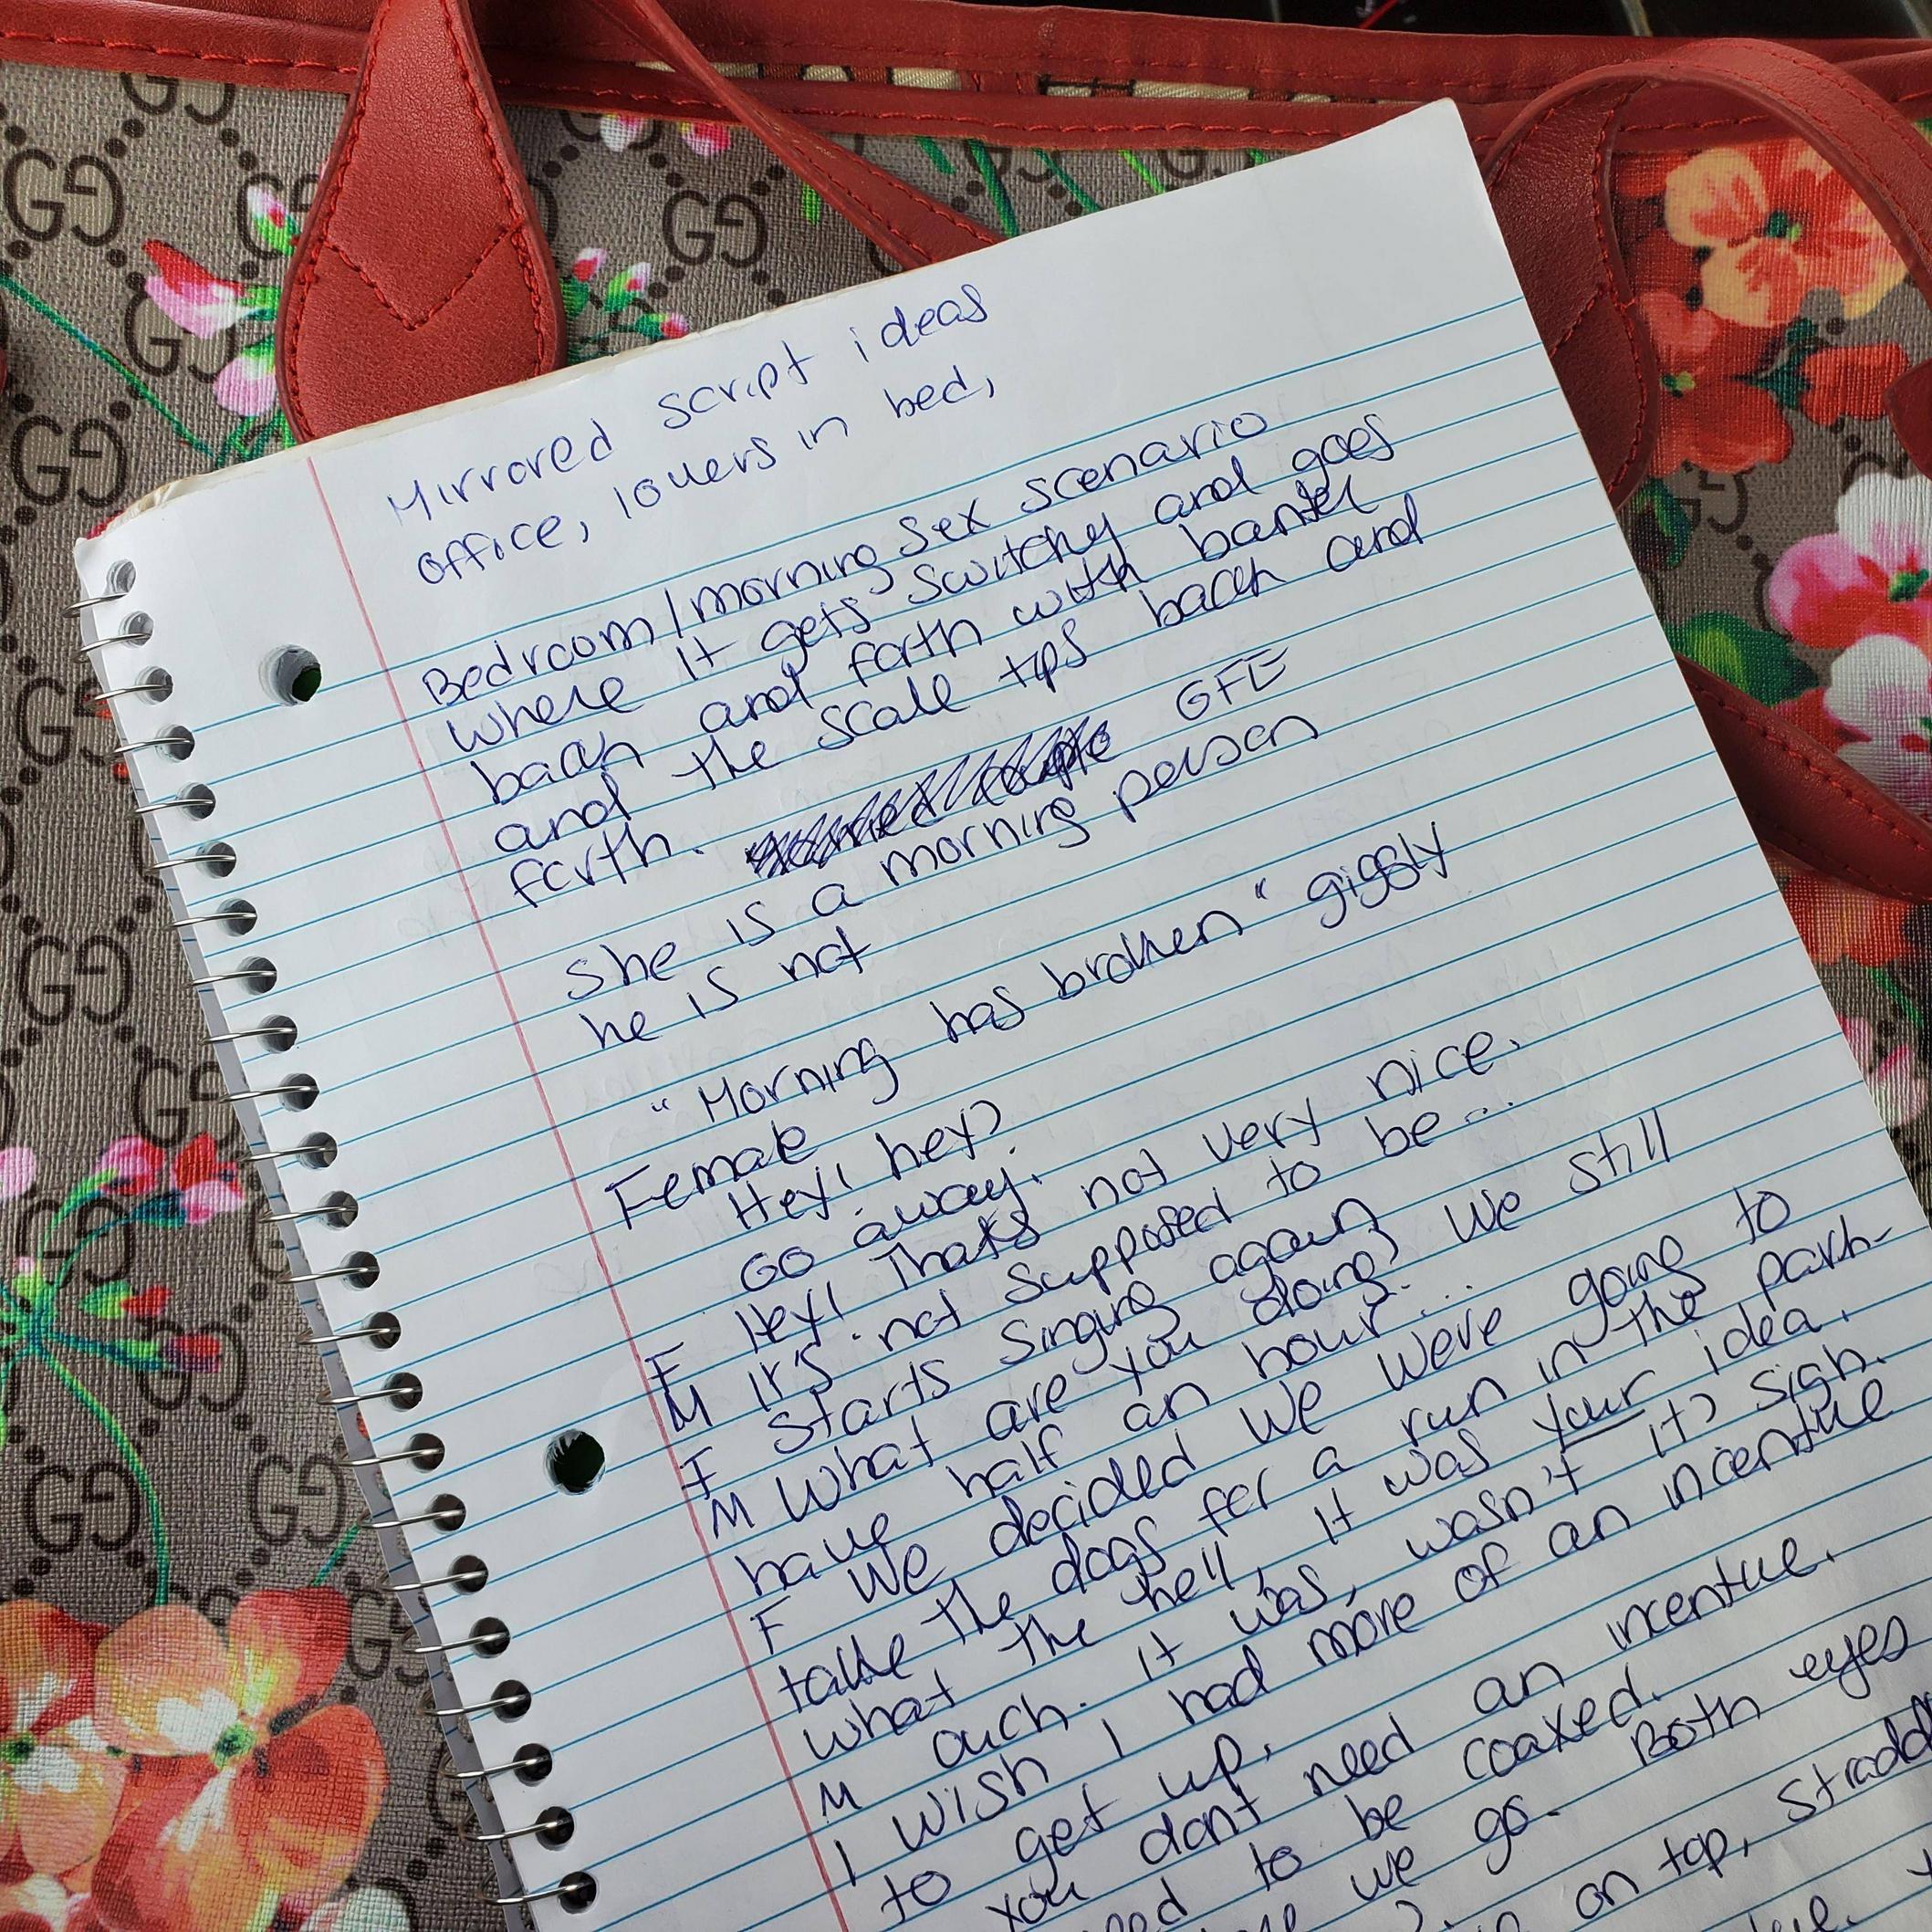 Mirrored script ideas
office, lovers in bed,
Bedroom/morning sex scenario
where it gets switchy and goes
back and forth with banter
and the scale tips back and
forth. GFE
she is a morning person
he is not
"Morning has broken" giggly
Female
Hey! hey?
Go away.
F Hey! Thats not very nice.
M It's not supposed to be...
F Starts singing again
M What are you doing? We still
have half an hour...
F We decided we were going to
take the dogs for a run in the park-
what the hell, it was your idea.
M ouch. It was, wasn't it? sigh.
I wish I had more of an incentive
to get up.
you dont need an incentive.
to be coaxed.
we go. Both eyes
on top,